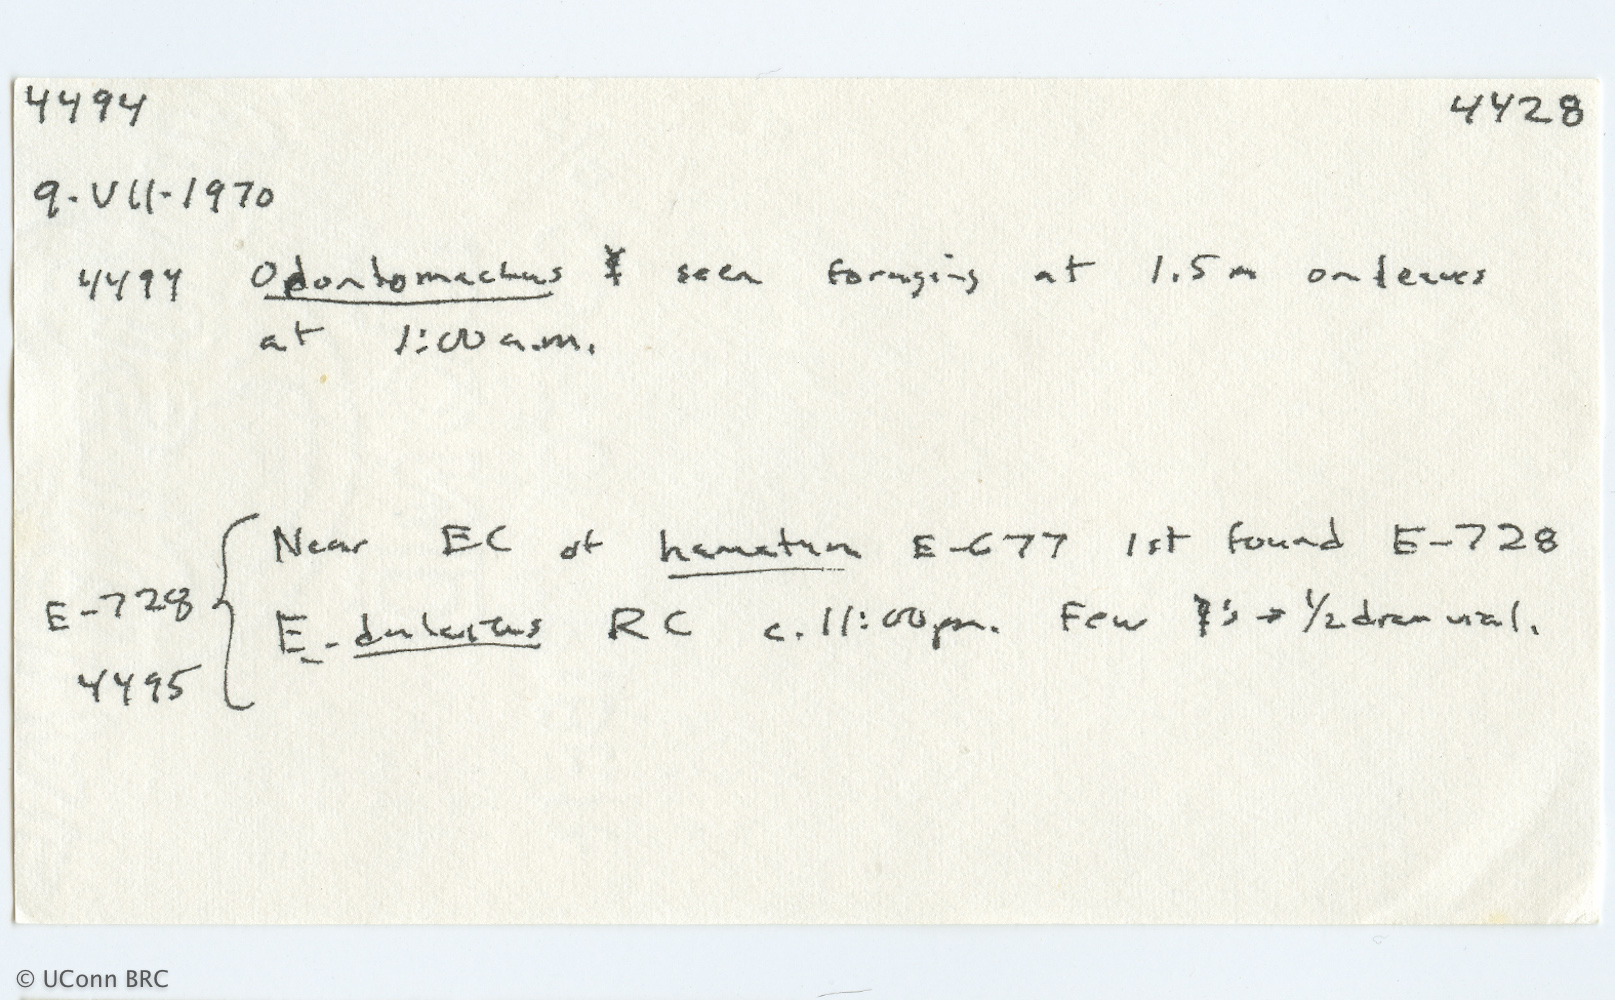 4494 4428
9-VII-1970
4494 Odontomachus ☿ seen foraging at 1.5m on leaves
at 1:00 a.m.
Near EC of hamatum E-677 1st found E-728
E-728
E. dulcius RC c. 11:00 pm. Few ☿'s → 1/2 dram vial.
4495
© UConn BRC